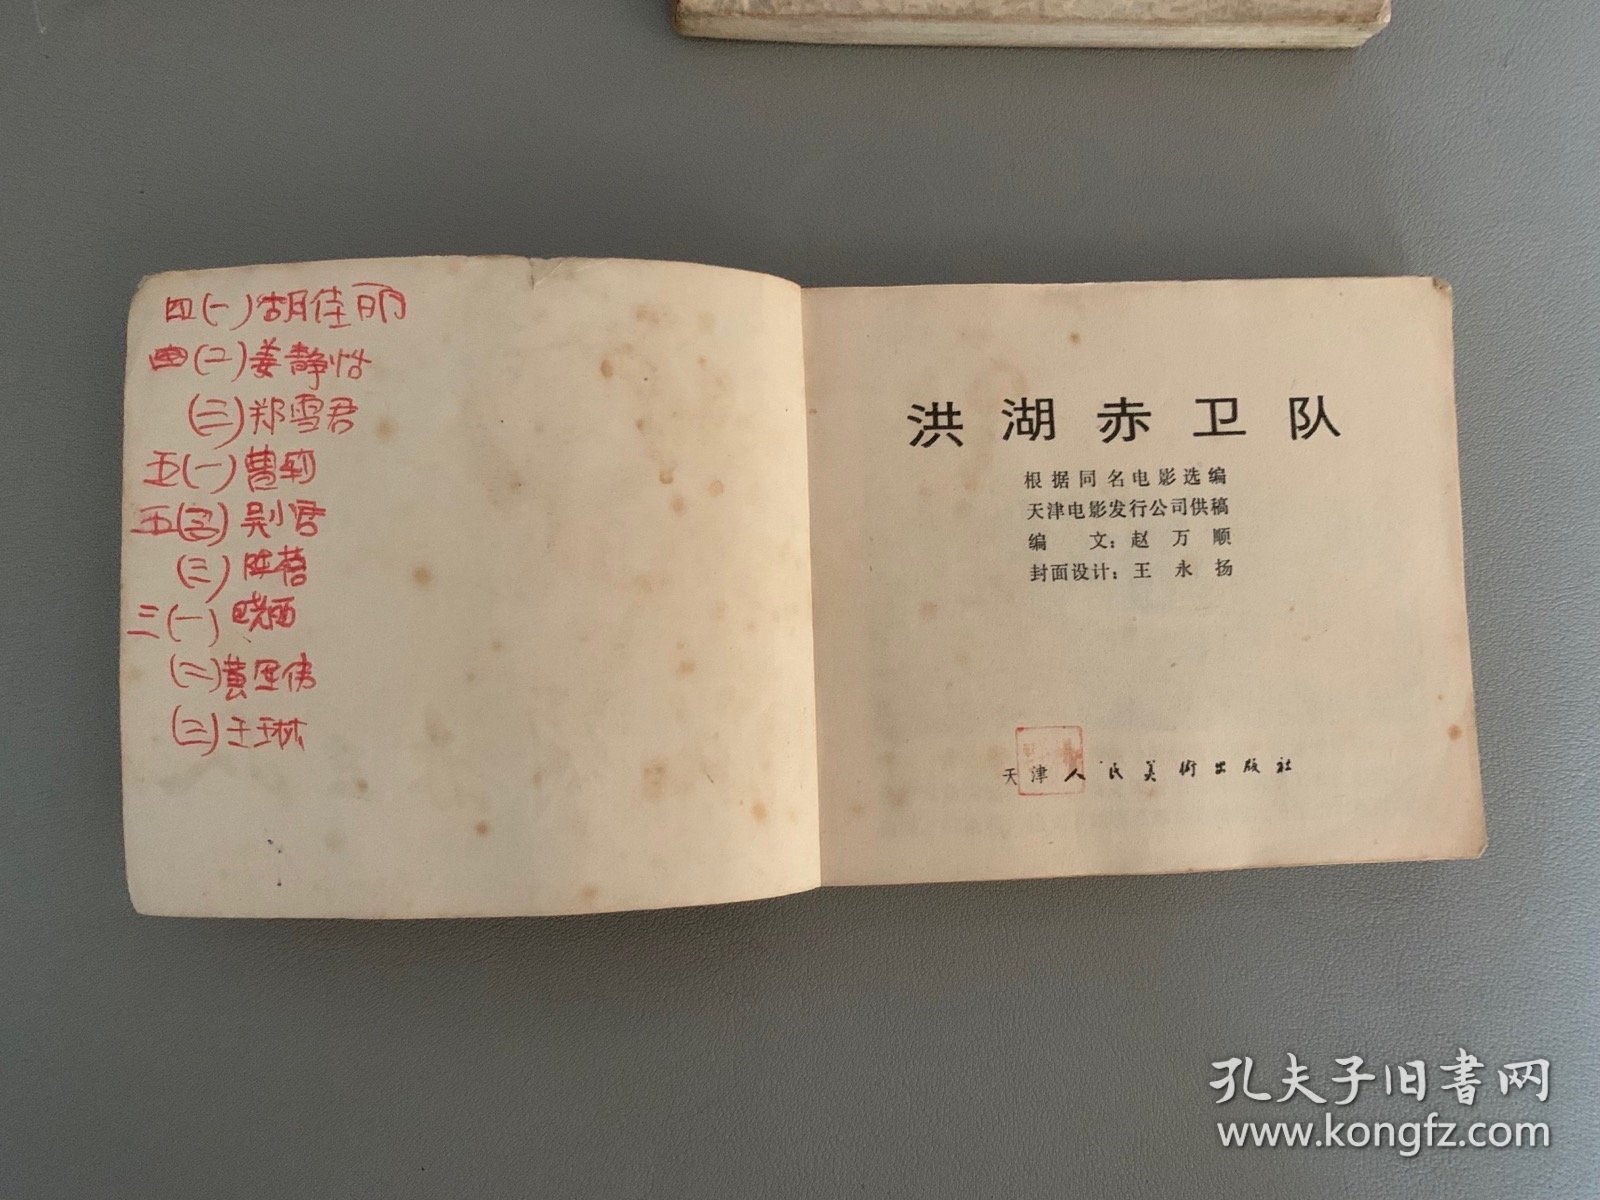 四(一)胡佳丽
四(二)姜静怡
(三)郑雪君
五(一)曹莉
五(二)吴小君
(三)陈蓓
三(一)晓西
(二)黄军伟
(三)王琳
洪湖赤卫队
根据同名电影选编
天津电影发行公司供稿
编 文：赵万顺
封面设计：王永扬
天津人民美術出版社
孔夫子旧书网
www.kongfz.com